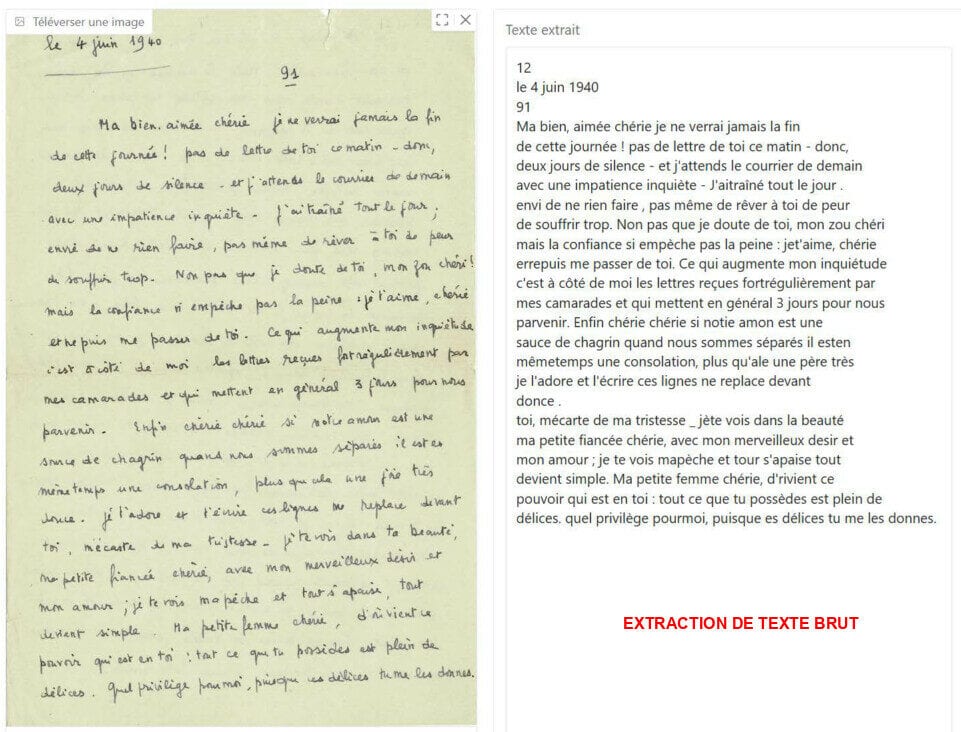 Téléverser une image
le 4 juin 1940
91
Ma bien-aimée chérie je ne verrai jamais la fin
de cette journée ! pas de lettre de toi ce matin - donc,
deux jours de silence - et j'attends le courrier de demain
avec une impatience inquiète - J'ai traîné tout le jour,
envie de ne rien faire, pas même de rêver à toi de peur
de souffrir trop. Non pas que je doute de toi, mon zou chéri !
mais la confiance n'empêche pas la peine : je t'aime, chérie
et ne puis me passer de toi. Ce qui augmente mon inquiétude
c'est à côté de moi les lettres reçues fort régulièrement par
mes camarades et qui mettent en général 3 jours pour nous
parvenir. Enfin chérie chérie si notre amour est une
source de chagrin quand nous sommes séparés il est en
même temps une consolation, plus que cela une joie très
douce. je t'adore et t'écrire ces lignes me replace devant
toi, m'écarte de ma tristesse - je te vois dans ta beauté,
ma petite fiancée chérie, avec mon merveilleux désir et
mon amour ; je te vois ma pêche et tout s'apaise, tout
devient simple. Ma petite femme chérie, d'où vient ce
pouvoir qui est en toi : tout ce que tu possèdes est plein de
délices. Quel privilège pour moi, puisque ces délices tu me les donnes.
Texte extrait
12
le 4 juin 1940
91
Ma bien, aimée chérie je ne verrai jamais la fin
de cette journée ! pas de lettre de toi ce matin - donc,
deux jours de silence - et j'attends le courrier de demain
avec une impatience inquiète - J'aitraîné tout le jour .
envi de ne rien faire , pas même de rêver à toi de peur
de souffrir trop. Non pas que je doute de toi, mon zou chéri
mais la confiance si empèche pas la peine : jet'aime, chérie
errepuis me passer de toi. Ce qui augmente mon inquiétude
c'est à côté de moi les lettres reçues fortrégulièrement par
mes camarades et qui mettent en général 3 jours pour nous
parvenir. Enfin chérie chérie si notie amon est une
sauce de chagrin quand nous sommes séparés il esten
mêmetemps une consolation, plus qu'ale une père très
je l'adore et l'écrire ces lignes ne replace devant
donce .
toi, mécarte de ma tristesse _ jète vois dans la beauté
ma petite fiancée chérie, avec mon merveilleux desir et
mon amour ; je te vois mapèche et tour s'apaise tout
devient simple. Ma petite femme chérie, d'rivient ce
pouvoir qui est en toi : tout ce que tu possèdes est plein de
délices. quel privilège pourmoi, puisque es délices tu me les donnes.
EXTRACTION DE TEXTE BRUT